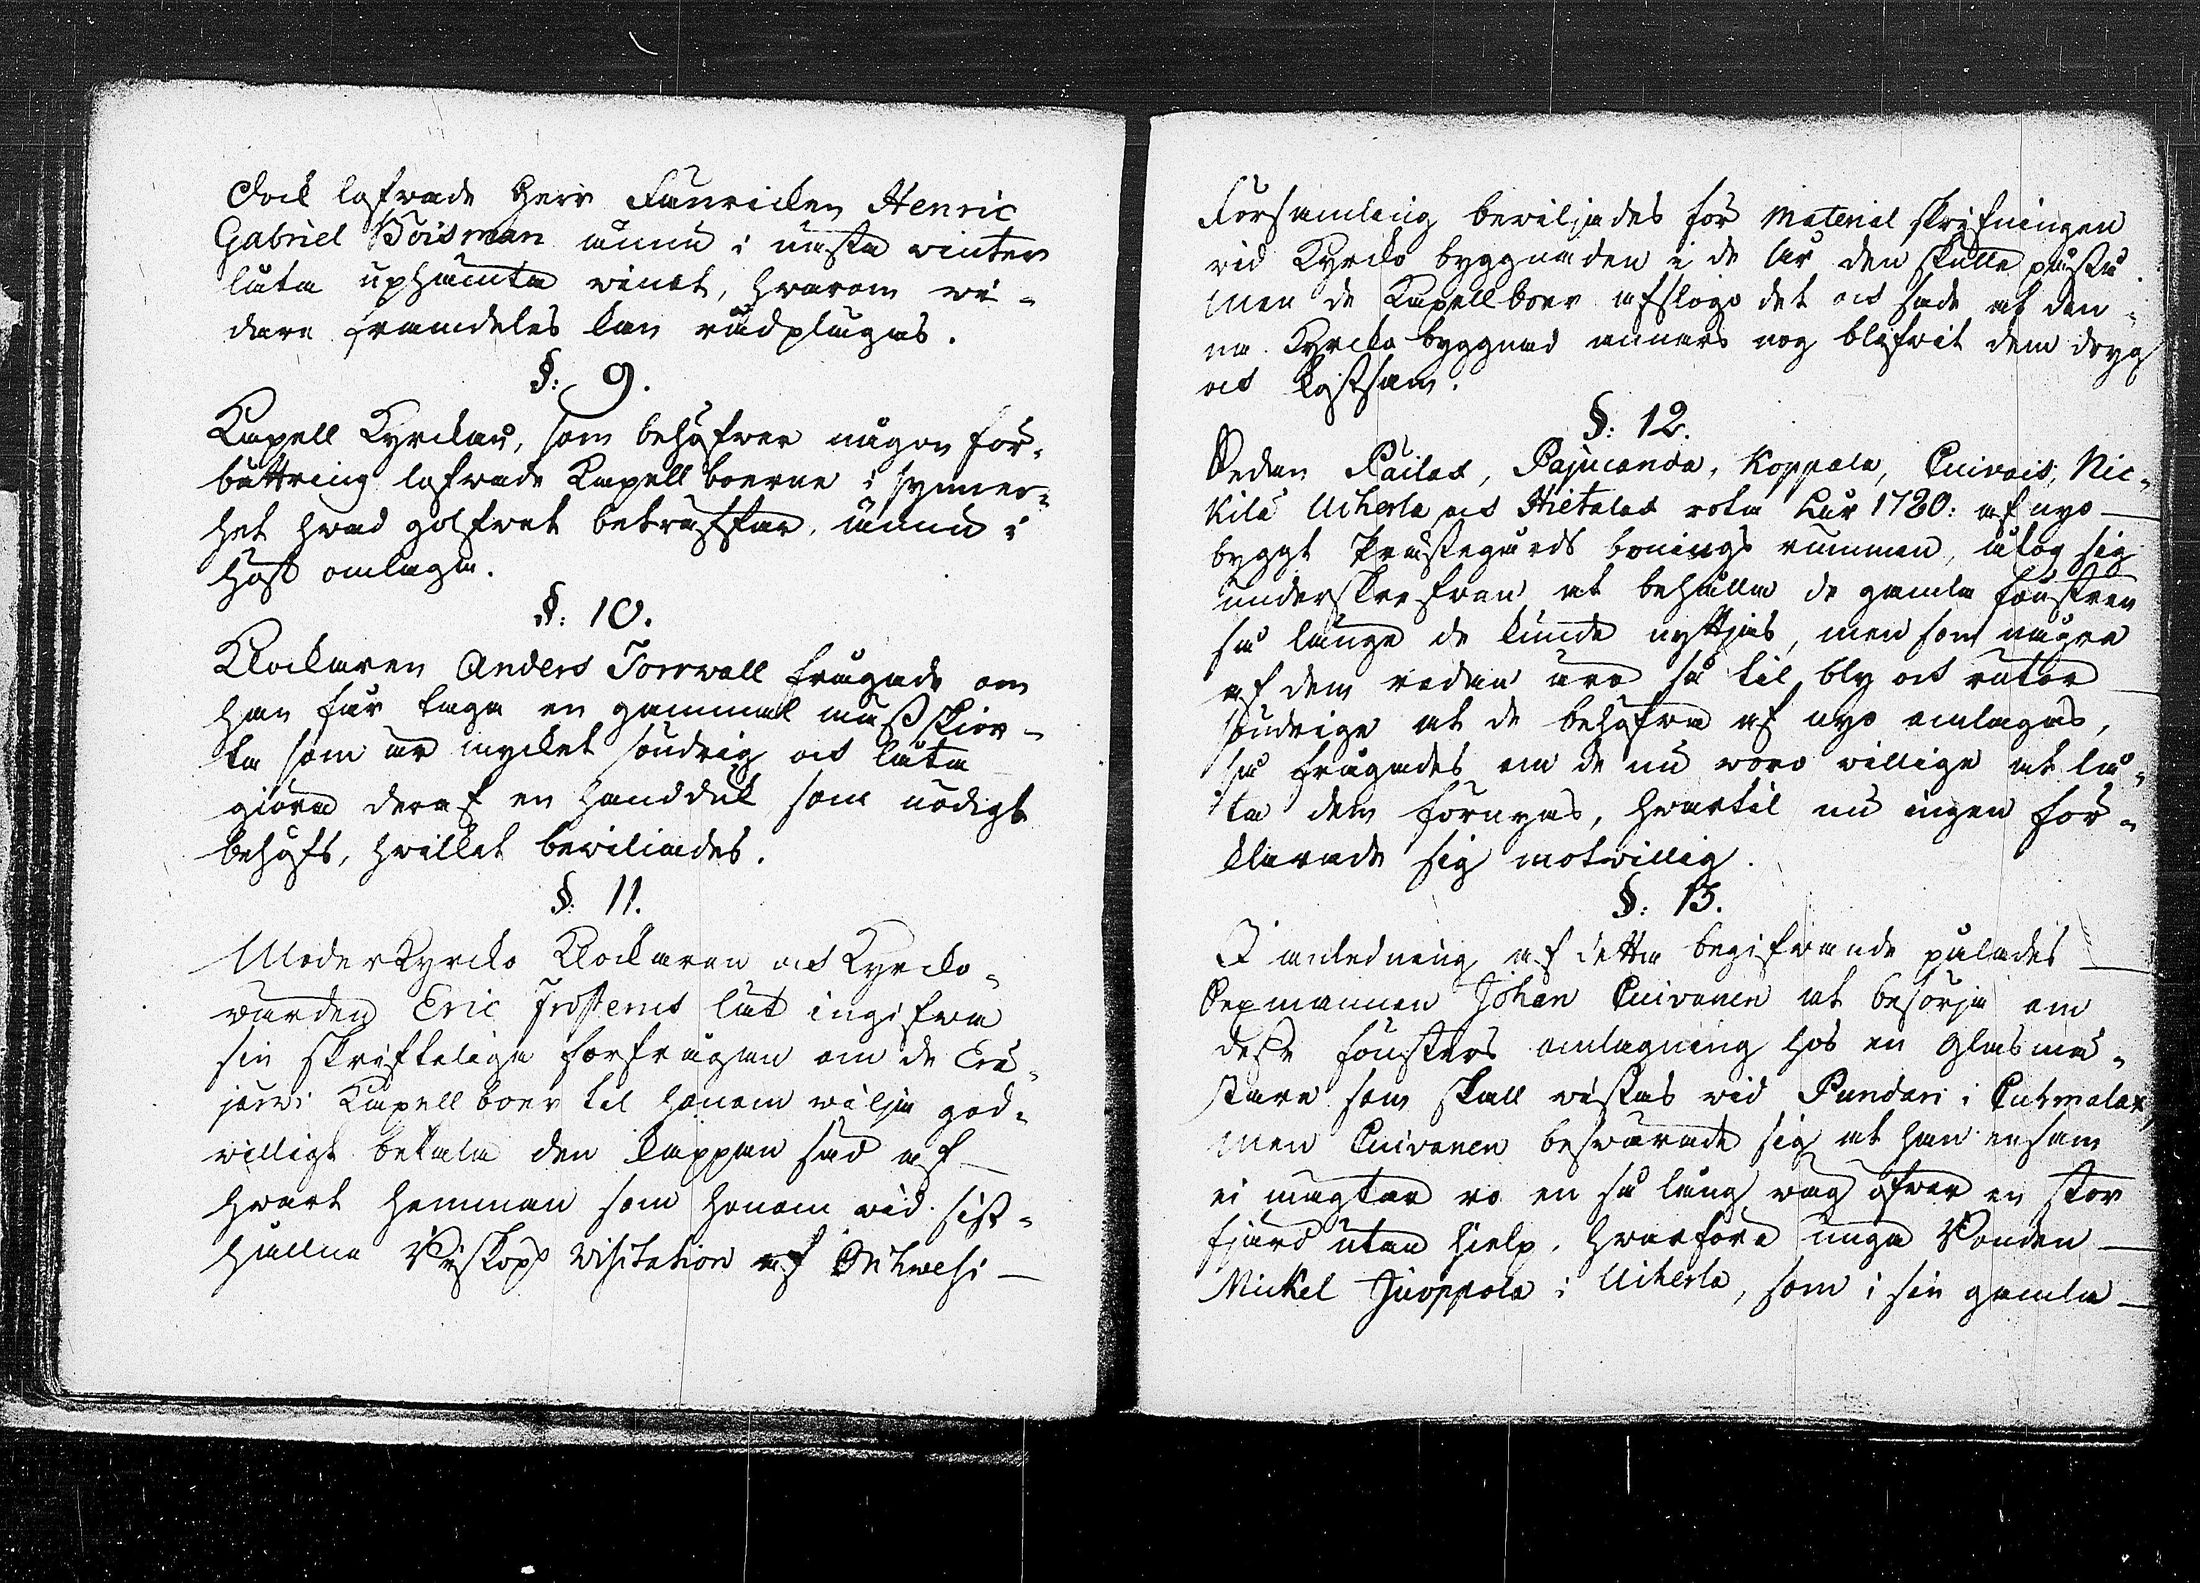 dock lofwade Herr Fänricken Henric
Gabriel Boisman ännu i nästa winter
låta uphämta winet, hwarom wi-
dare framdeles kan rådplägas.
§: 9.
Kapell Kyrckan, som behöfwer någon för-
bättring lofwade Kapellboerne i synner-
het hwad golfwet beträffar, ännu i
höst omlaga.
§: 10.
Klockaren Anders Torrwall frågade om
han får taga en gammal mässskior-
ta som är mycket söndrig och låta
giöra deraf en handduk som nödigt
behöfs, hwilket bewiliades.
§: 11.
Moderkyrcko Klockaren och Kyrcko-
wärden Eric Frosterus lät ingifwa
sin skriftelige förfrågan om de Erä-
jerwi Kapellboer til honom wilja god-
willigt betala den kappan säd af
hwart hemman som honom wid sist-
hållne Biskops Visitation af Orihwesi
Församling bewiljades för Material skrifningen
wid Kyrcko byggnaden i de år den skulle påstå
men de Kapellboer afslogo det och sade at den-
na Kyrcko byggnad annars nog blifwit dem dryg
och kostsam.
§: 12.
Sedan Pailax, Pajucanda, Koppala, Cuivais, Nic-
kilä Uiherla och Hietalax rota har 1780: af nyo
byggt Prästegårds bonings rummen, åtog sig
underskrefwen at behålla de gamla fönstren
så länge de kunde nyttjas, men som några
af dem redan äro så til bly och rutor
söndrige at de behöfwa af nyo omlagas,
så frågades om de nu woro willige at lå-
ta dem förnyas, hwartil nu ingen för-
klarade sig motwillig.
§: 13.
I anledning af detta begifwande pålades
Sexmannen Johan Cuivanen at besörja om
desse fönsters omlagning hos en Glasmä-
stare som skall wistas wid Pundari i Cuhmalax,
men Cuivanen beswärade sig at han ensam
ei mägtar ro en så lång wäg öfwer en stor
fjärd utan hielp, hwarföre unga Bonden
Mickel Juoppola i Uiherla, som i sin gamla